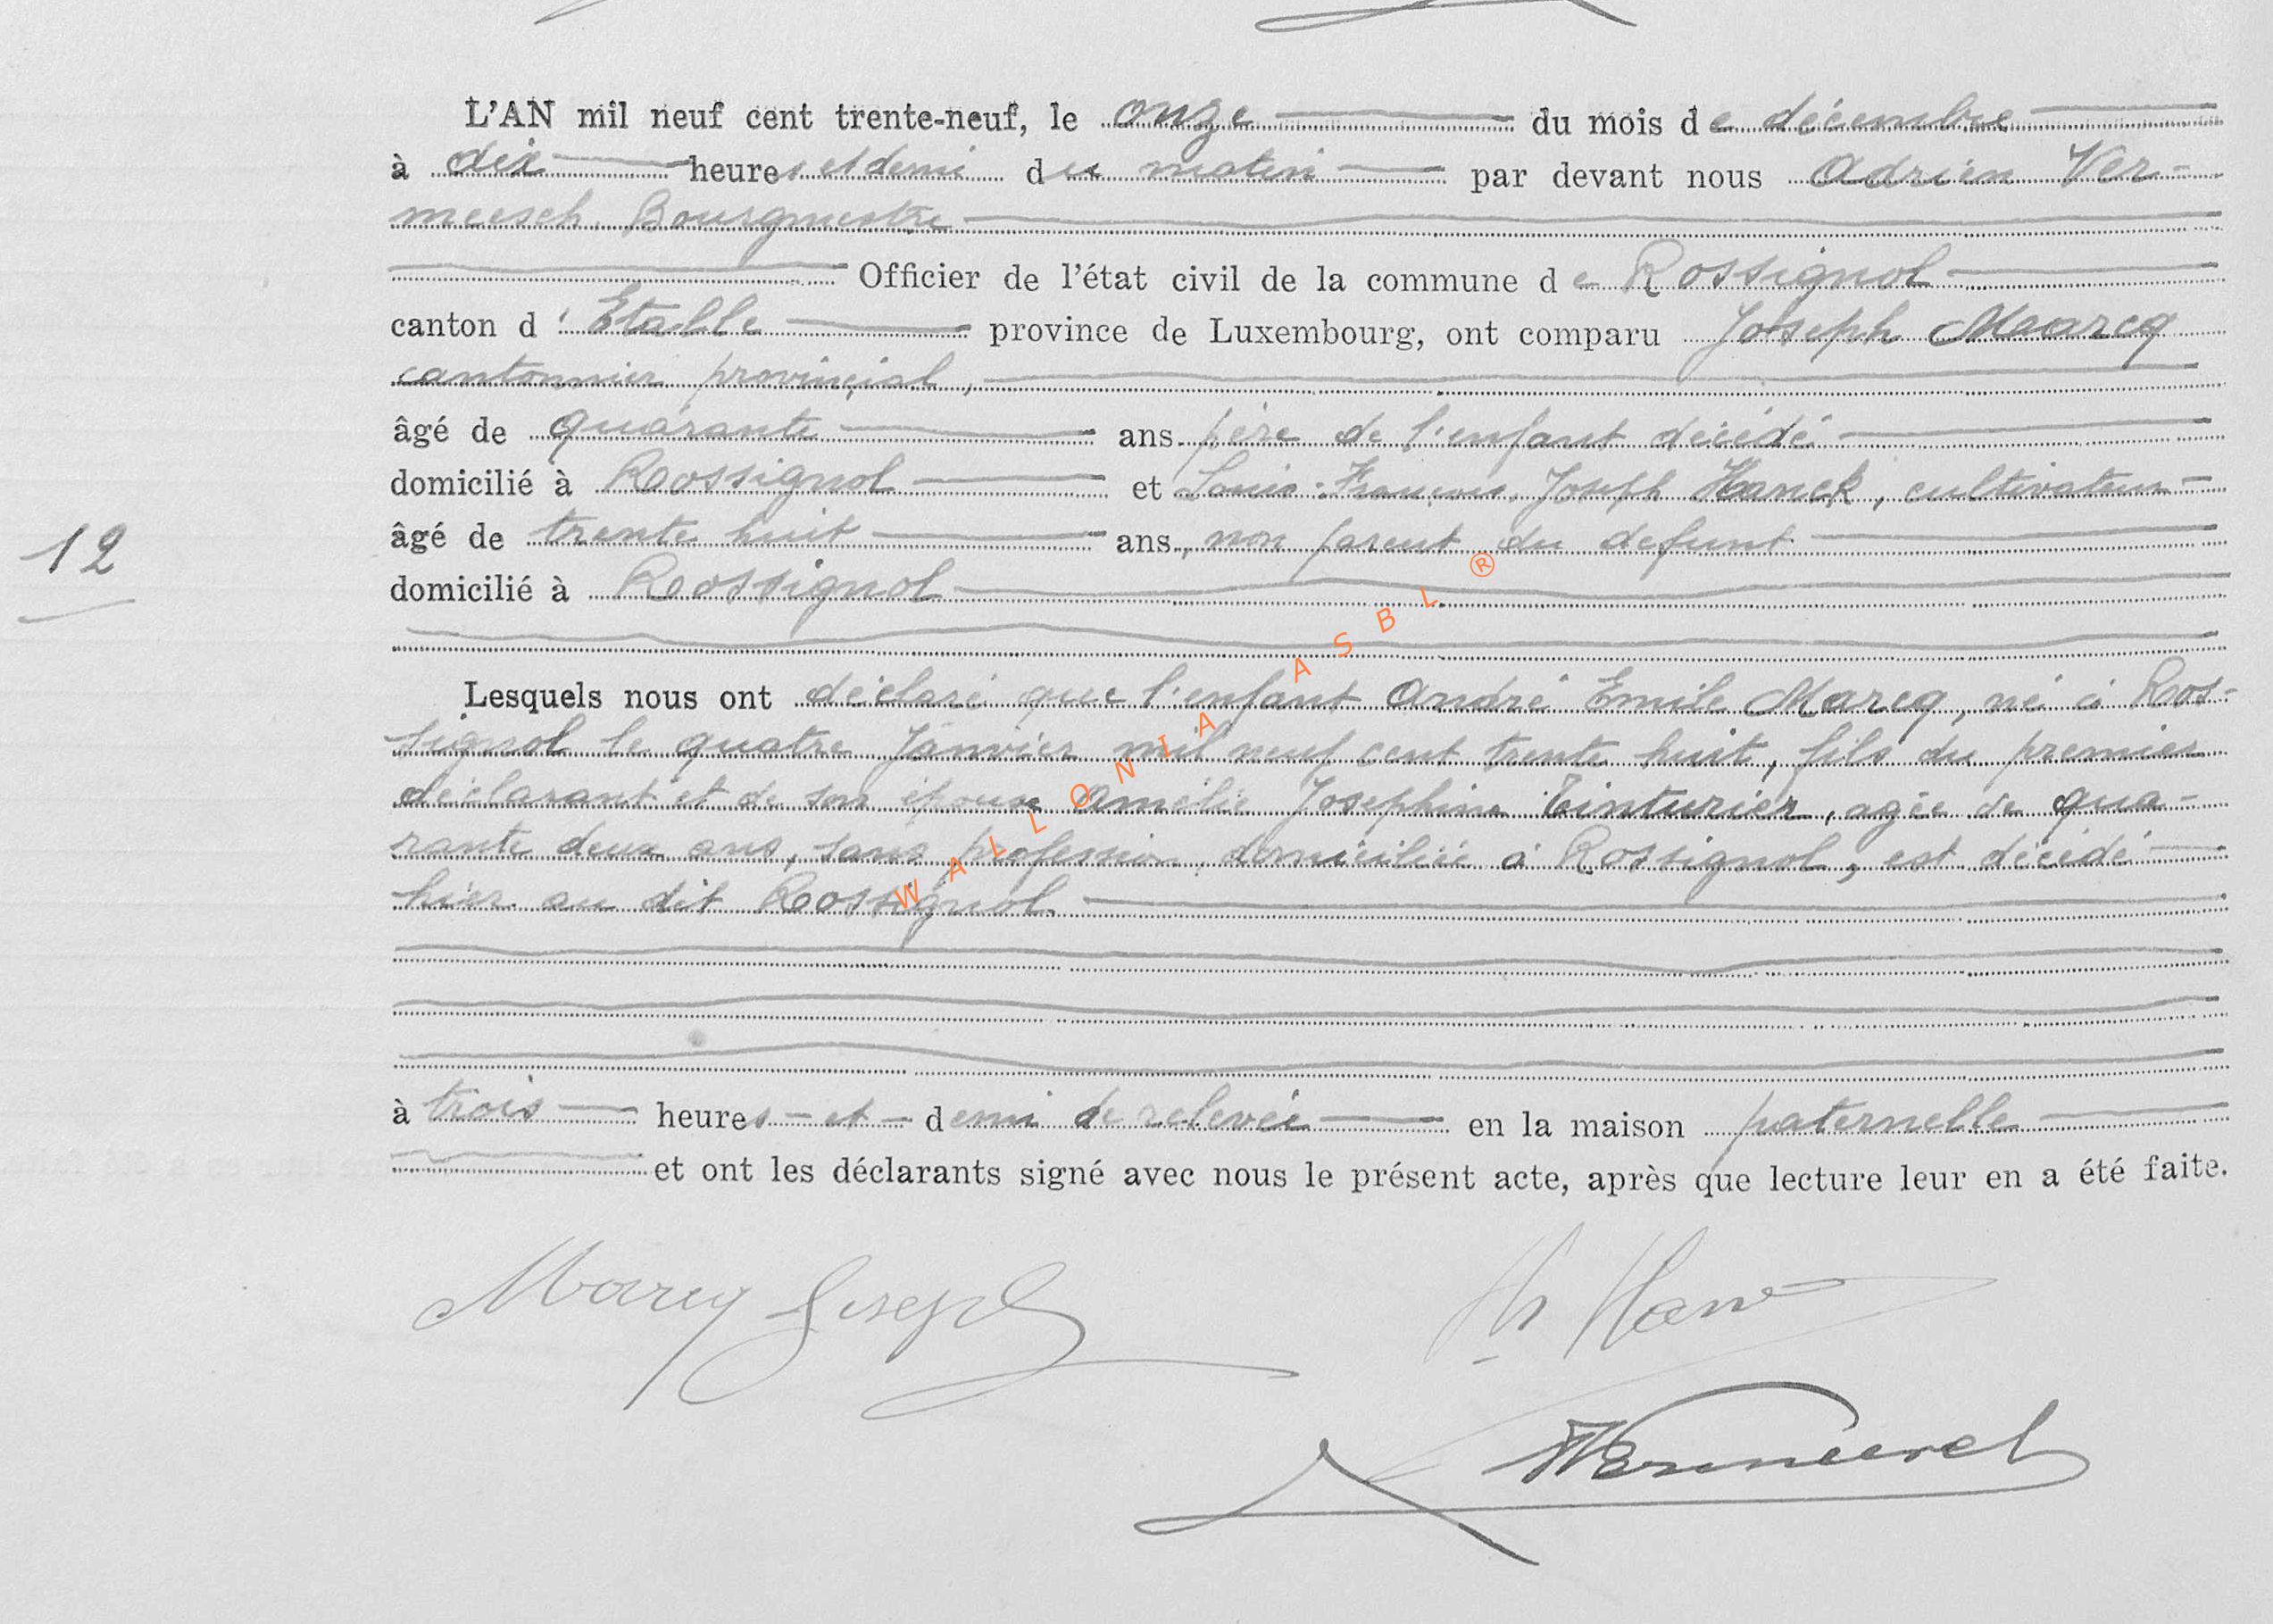 L'AN mil neuf cent trente-neuf, le onze du mois de décembre
à dix heures et demi du matin par devant nous Adrien Ver-
meesch, Bourgmestre
Officier de l'état civil de la commune de Rossignol
canton d'Etalle province de Luxembourg, ont comparu Joseph Marcq
cantonnier provincial,
âgé de quarante ans père de l'enfant décédé
domicilié à Rossignol et Louis-François Joseph Hanck, cultivateur
âgé de trente huit ans, non parent du defunt
12
domicilié à Rossignol
Lesquels nous ont déclaré que l'enfant André Emile Marcq, né à Ros-
signol le quatre Janvier mil neuf cent trente huit, fils du premier
déclarant et de son épouse Amélie Joséphine Tinturier, agée de qua-
rante deux ans, sans profession, domiciliée à Rossignol, est décédé
hier au dit Rossignol
à trois heures et demi de relevée en la maison paternelle
et ont les déclarants signé avec nous le présent acte, après que lecture leur en a été faite.
Marcq Joseph
WALLONIA ASBL ®